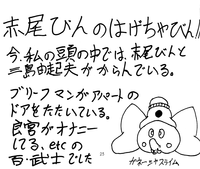 赤尾びんのはげちゃびん!!
今、私の頭の中では、赤尾びんと
三島由起夫がからんでいる。
ブリーフマンがアパートの
ドアをたたいている。
良寛がオナニー
してる、etcの
百・武士でした
かなーシャスライム